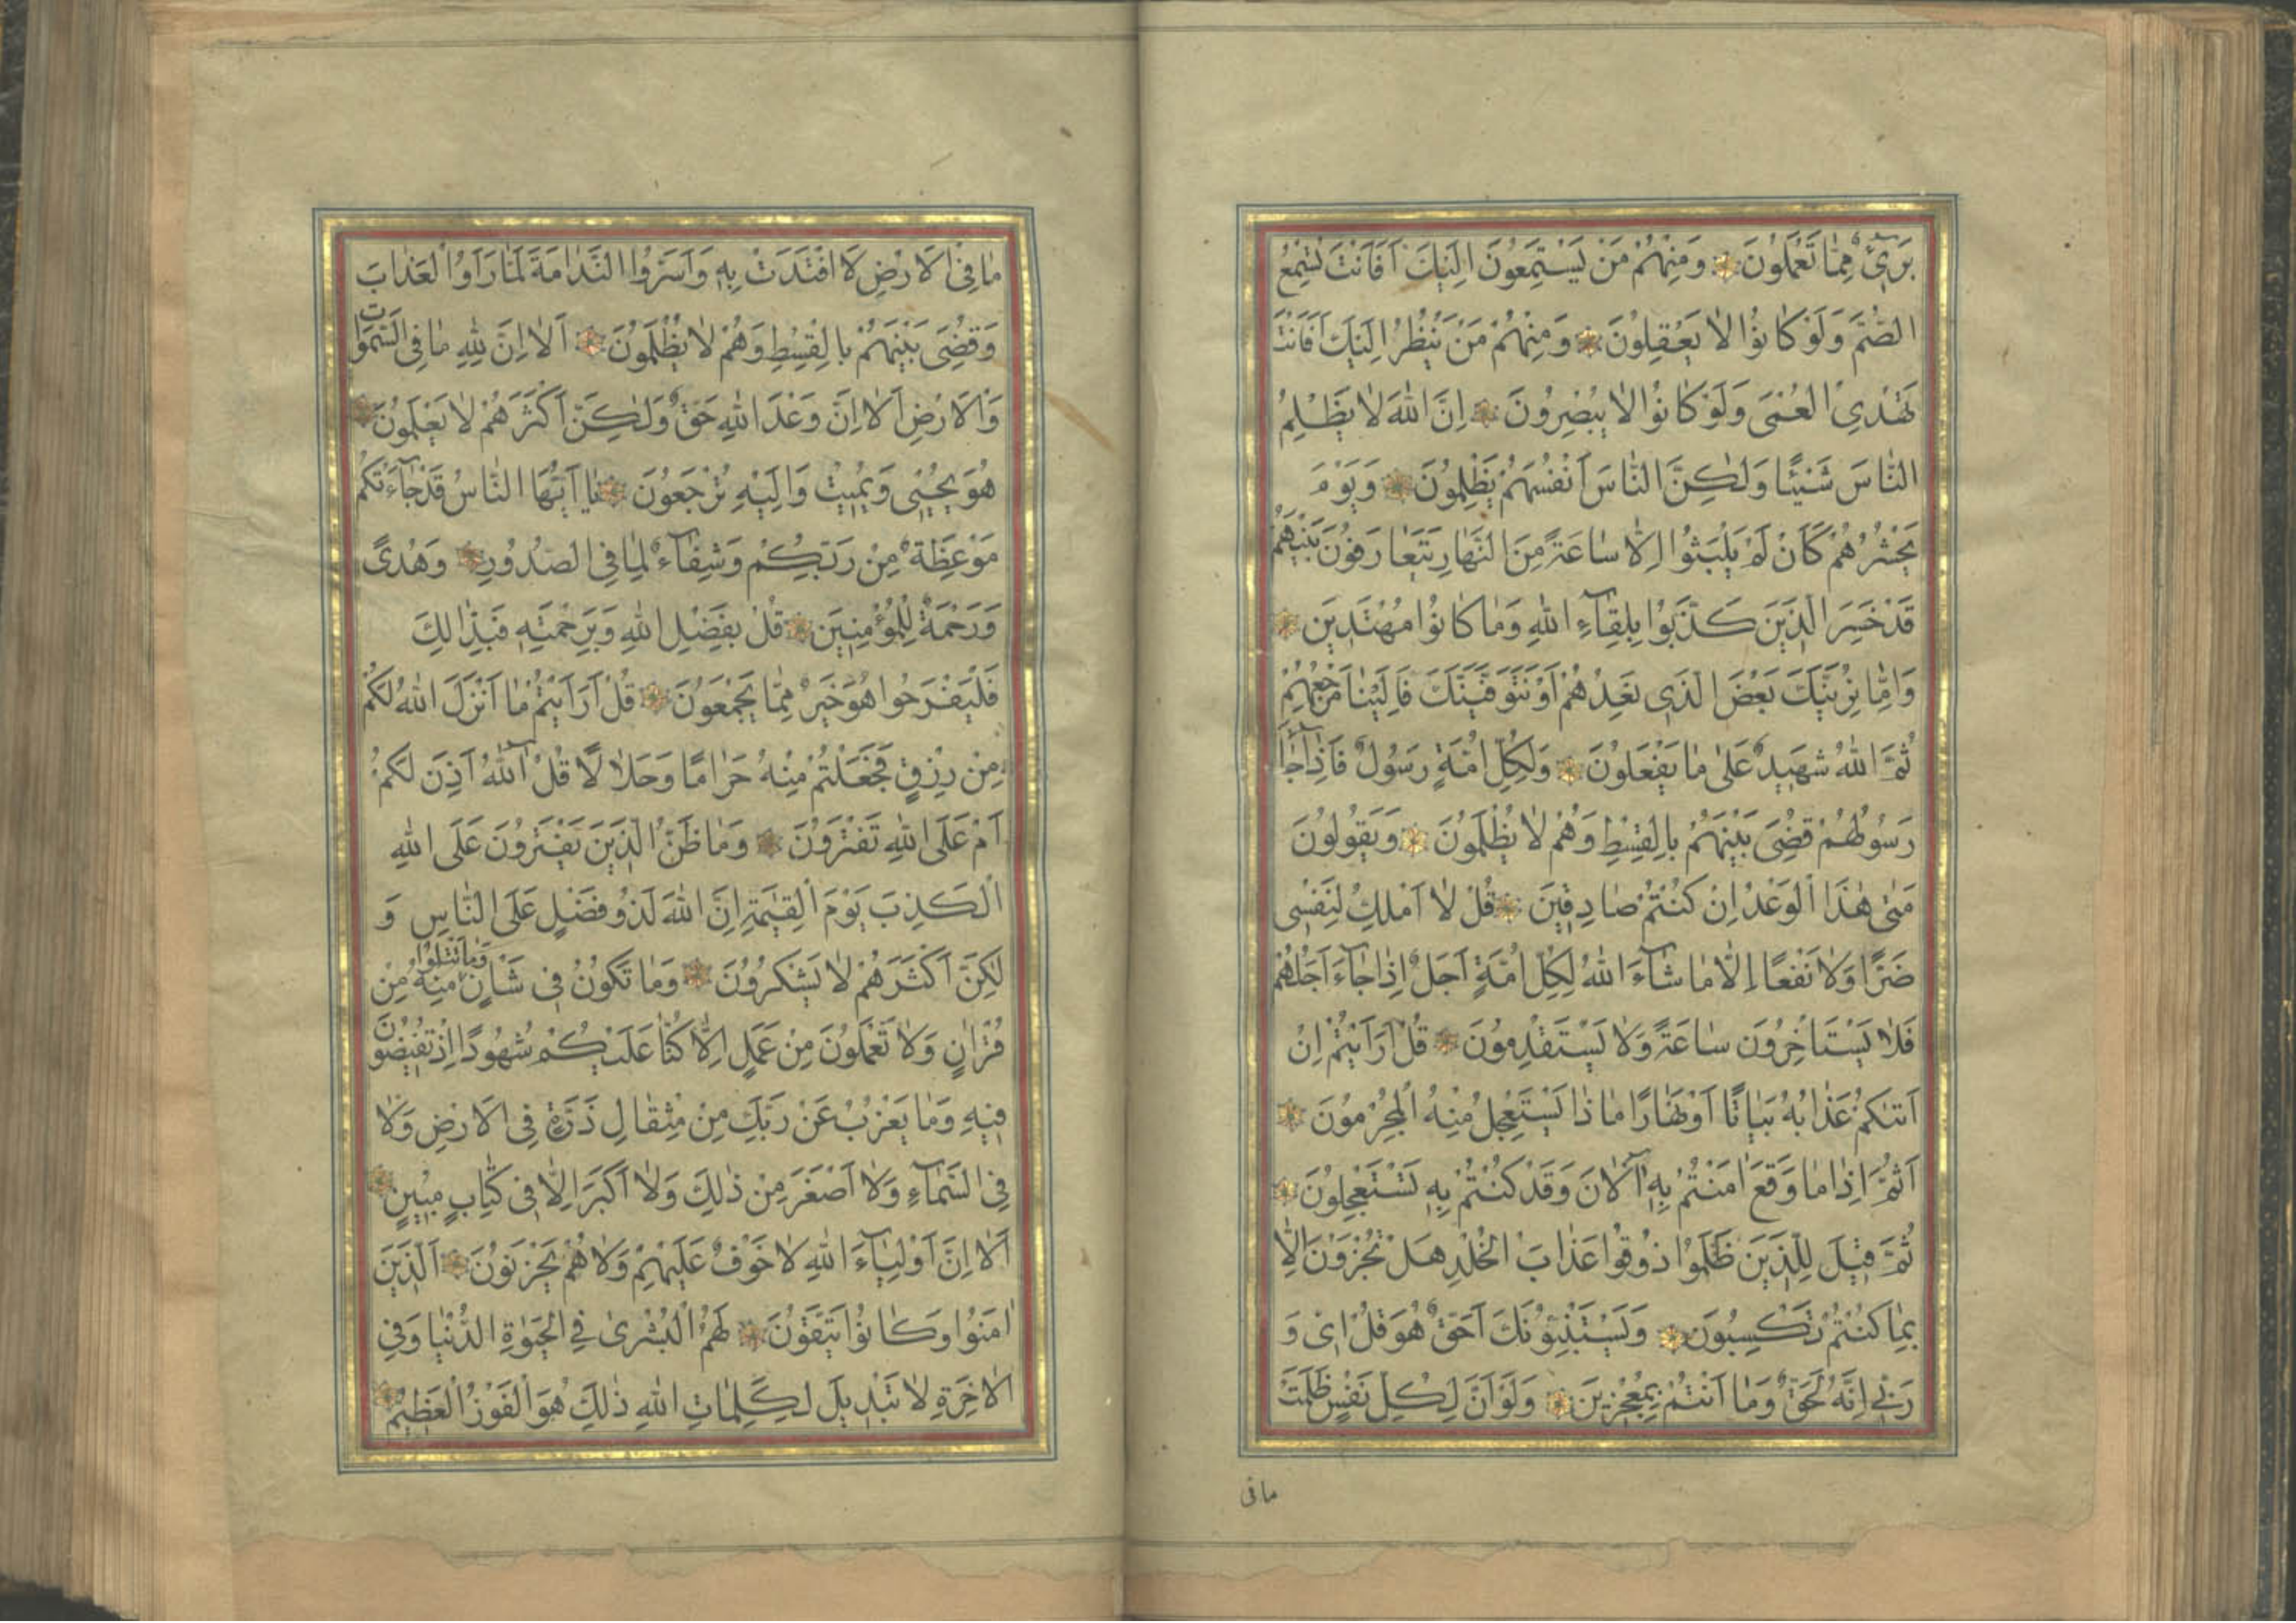 بَرِيءٌ مِمَّا تَعْمَلُونَ وَمِنْهُمْ مَنْ يَسْتَمِعُونَ اِلَيْكَ اَفَاَنْتَ تُسْمِعُ
الصُّمَّ وَلَوْ كَانُوا لَا يَعْقِلُونَ وَمِنْهُمْ مَنْ يَنْظُرُ اِلَيْكَ اَفَاَنْتَ
تَهْدِي الْعُمْىَ وَلَوْ كَانُوا لَا يُبْصِرُونَ اِنَّ اللّٰهَ لَا يَظْلِمُ
النَّاسَ شَيْئًا وَلٰكِنَّ النَّاسَ اَنْفُسَهُمْ يَظْلِمُونَ وَيَوْمَ
يَحْشُرُهُمْ كَاَنْ لَمْ يَلْبَثُوا اِلَّا سَاعَةً مِنَ النَّهَارِ يَتَعَارَفُونَ بَيْنَهُمْ
قَدْ خَسِرَ الَّذِينَ كَذَّبُوا بِلِقَآءِ اللّٰهِ وَمَا كَانُوا مُهْتَدِينَ
وَاِمَّا نُرِيَنَّكَ بَعْضَ الَّذِي نَعِدُهُمْ اَوْ نَتَوَفَّيَنَّكَ فَاِلَيْنَا مَرْجِعُهُمْ
ثُمَّ اللّٰهُ شَهِيدٌ عَلٰى مَا يَفْعَلُونَ وَلِكُلِّ اُمَّةٍ رَسُولٌ فَاِذَا جَآءَ
رَسُولُهُمْ قُضِيَ بَيْنَهُمْ بِالْقِسْطِ وَهُمْ لَا يُظْلَمُونَ وَيَقُولُونَ
مَتٰى هٰذَا الْوَعْدُ اِنْ كُنْتُمْ صَادِقِينَ قُلْ لَا اَمْلِكُ لِنَفْسِي
ضَرًّا وَلَا نَفْعًا اِلَّا مَا شَآءَ اللّٰهُ لِكُلِّ اُمَّةٍ اَجَلٌ اِذَا جَآءَ اَجَلُهُمْ
فَلَا يَسْتَاْخِرُونَ سَاعَةً وَلَا يَسْتَقْدِمُونَ قُلْ اَرَاَيْتُمْ اِنْ
اَتٰىكُمْ عَذَابُهُ بَيَاتًا اَوْ نَهَارًا مَاذَا يَسْتَعْجِلُ مِنْهُ الْمُجْرِمُونَ
اَثُمَّ اِذَا مَا وَقَعَ اٰمَنْتُمْ بِهِ آلْاٰنَ وَقَدْ كُنْتُمْ بِهِ تَسْتَعْجِلُونَ
ثُمَّ قِيلَ لِلَّذِينَ ظَلَمُوا ذُوقُوا عَذَابَ الْخُلْدِ هَلْ تُجْزَوْنَ اِلَّا
بِمَا كُنْتُمْ تَكْسِبُونَ وَيَسْتَنْبِئُونَكَ اَحَقٌّ هُوَ قُلْ اِي وَ
رَبِّي اِنَّهُ لَحَقٌّ وَمَا اَنْتُمْ بِمُعْجِزِينَ وَلَوْ اَنَّ لِكُلِّ نَفْسٍ ظَلَمَتْ
مافى
مَا فِي الْاَرْضِ لَافْتَدَتْ بِهِ وَاَسَرُّوا النَّدَامَةَ لَمَّا رَاَوُا الْعَذَابَ
وَقُضِيَ بَيْنَهُمْ بِالْقِسْطِ وَهُمْ لَا يُظْلَمُونَ اَلَا اِنَّ لِلّٰهِ مَا فِي السَّمٰوَاتِ
وَالْاَرْضِ اَلَا اِنَّ وَعْدَ اللّٰهِ حَقٌّ وَلٰكِنَّ اَكْثَرَهُمْ لَا يَعْلَمُونَ
هُوَ يُحْيِي وَيُمِيتُ وَاِلَيْهِ تُرْجَعُونَ يَا اَيُّهَا النَّاسُ قَدْ جَآءَتْكُمْ
مَوْعِظَةٌ مِنْ رَبِّكُمْ وَشِفَآءٌ لِمَا فِي الصُّدُورِ وَهُدًى
وَرَحْمَةٌ لِلْمُؤْمِنِينَ قُلْ بِفَضْلِ اللّٰهِ وَبِرَحْمَتِهِ فَبِذٰلِكَ
فَلْيَفْرَحُوا هُوَ خَيْرٌ مِمَّا يَجْمَعُونَ قُلْ اَرَاَيْتُمْ مَا اَنْزَلَ اللّٰهُ لَكُمْ
مِنْ رِزْقٍ فَجَعَلْتُمْ مِنْهُ حَرَامًا وَحَلَالًا قُلْ آللّٰهُ اَذِنَ لَكُمْ
اَمْ عَلَى اللّٰهِ تَفْتَرُونَ وَمَا ظَنُّ الَّذِينَ يَفْتَرُونَ عَلَى اللّٰهِ
الْكَذِبَ يَوْمَ الْقِيٰمَةِ اِنَّ اللّٰهَ لَذُو فَضْلٍ عَلَى النَّاسِ وَ
لٰكِنَّ اَكْثَرَهُمْ لَا يَشْكُرُونَ وَمَا تَكُونُ فِي شَاْنٍ وَمَا تَتْلُوا مِنْهُ مِنْ
قُرْاٰنٍ وَلَا تَعْمَلُونَ مِنْ عَمَلٍ اِلَّا كُنَّا عَلَيْكُمْ شُهُودًا اِذْ تُفِيضُونَ
فِيهِ وَمَا يَعْزُبُ عَنْ رَبِّكَ مِنْ مِثْقَالِ ذَرَّةٍ فِي الْاَرْضِ وَلَا
فِي السَّمَآءِ وَلَا اَصْغَرَ مِنْ ذٰلِكَ وَلَا اَكْبَرَ اِلَّا فِي كِتَابٍ مُبِينٍ
اَلَا اِنَّ اَوْلِيَآءَ اللّٰهِ لَا خَوْفٌ عَلَيْهِمْ وَلَا هُمْ يَحْزَنُونَ اَلَّذِينَ
اٰمَنُوا وَكَانُوا يَتَّقُونَ لَهُمُ الْبُشْرٰى فِي الْحَيٰوةِ الدُّنْيَا وَفِي
الْاٰخِرَةِ لَا تَبْدِيلَ لِكَلِمَاتِ اللّٰهِ ذٰلِكَ هُوَ الْفَوْزُ الْعَظِيمُ